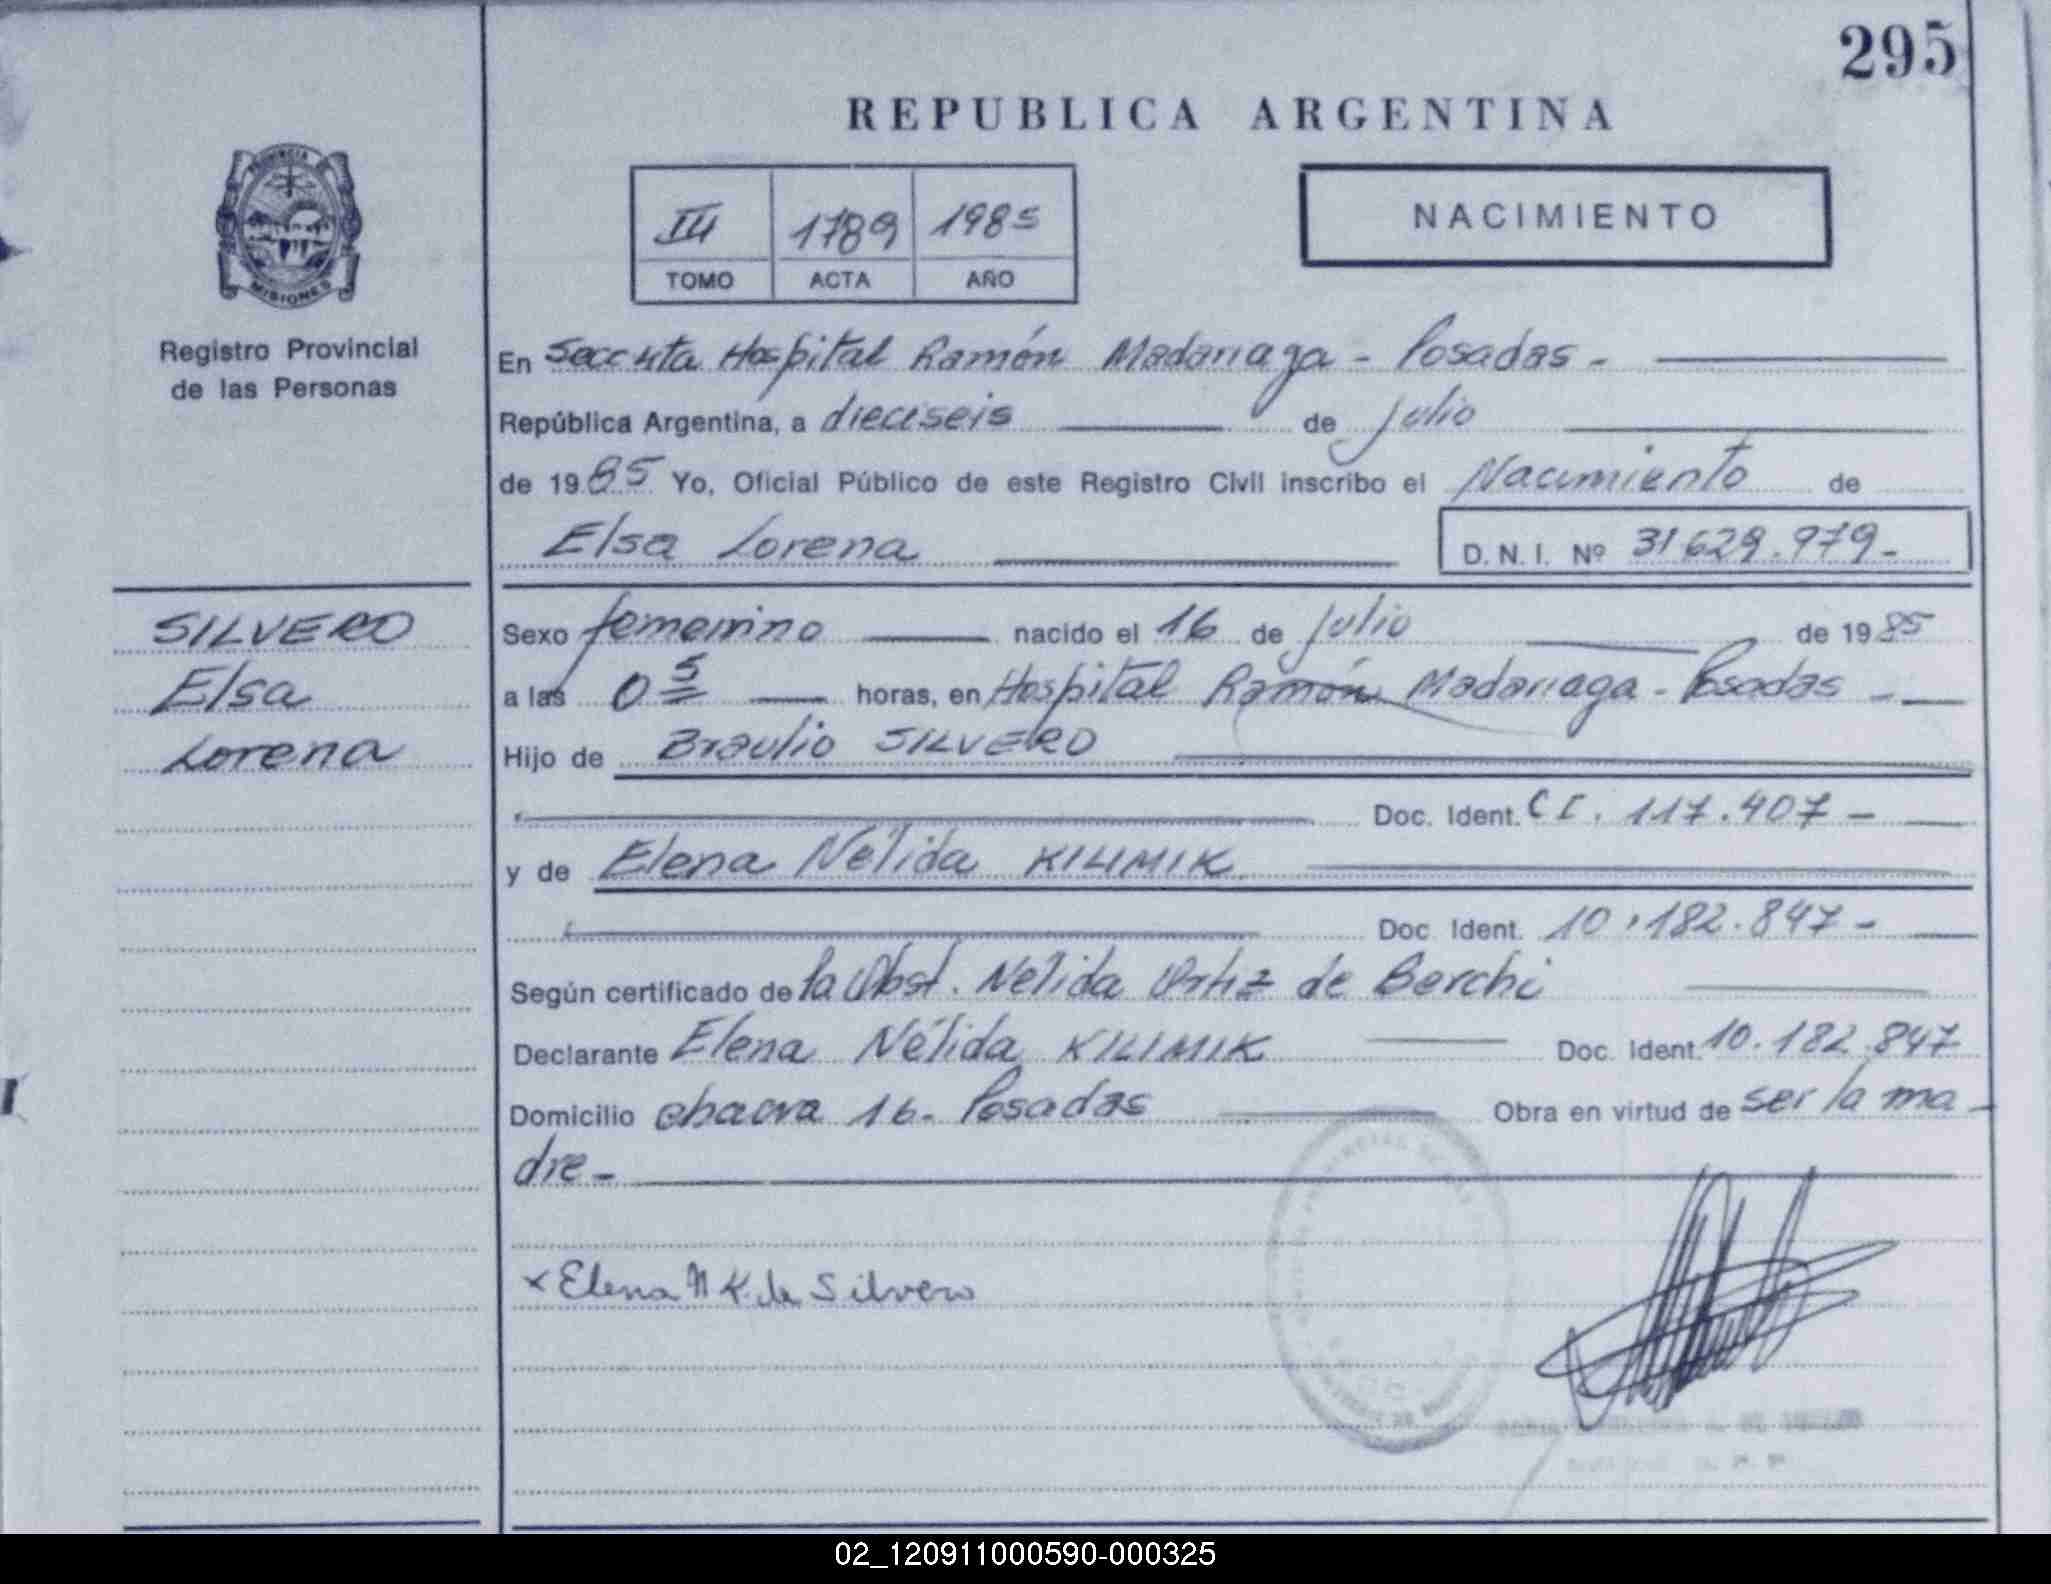 295
REPUBLICA ARGENTINA
PROVINCIA
MISIONES
Registro Provincial
de las Personas
III 1789 1985
TOMO ACTA AÑO
NACIMIENTO
En Hospital Ramón Madariaga - Posadas -
República Argentina, a dieciseis de julio
de 1985 Yo, Oficial Público de este Registro Civil inscribo el Nacimiento de
Elsa Lorena D. N. I. Nº 31629.979-
SILVERO
Elsa
Lorena
Sexo femenino nacido el 16 de julio de 1985
a las 0 5 horas, en Hospital Ramón Madariaga - Posadas -
Hijo de Braulio SILVERO
Doc. Ident. C I. 117.407 -
y de Elena Nélida KILIMIK
Doc. Ident. 10.182.847 -
Según certificado de la Obst. Nelida Ortiz de Berchi
Declarante Elena Nélida KILIMIK Doc. Ident. 10.182.847
Domicilio chacra 16- Posadas Obra en virtud de ser la ma -
dre -
x Elena N K. de Silvero
02_120911000590-000325